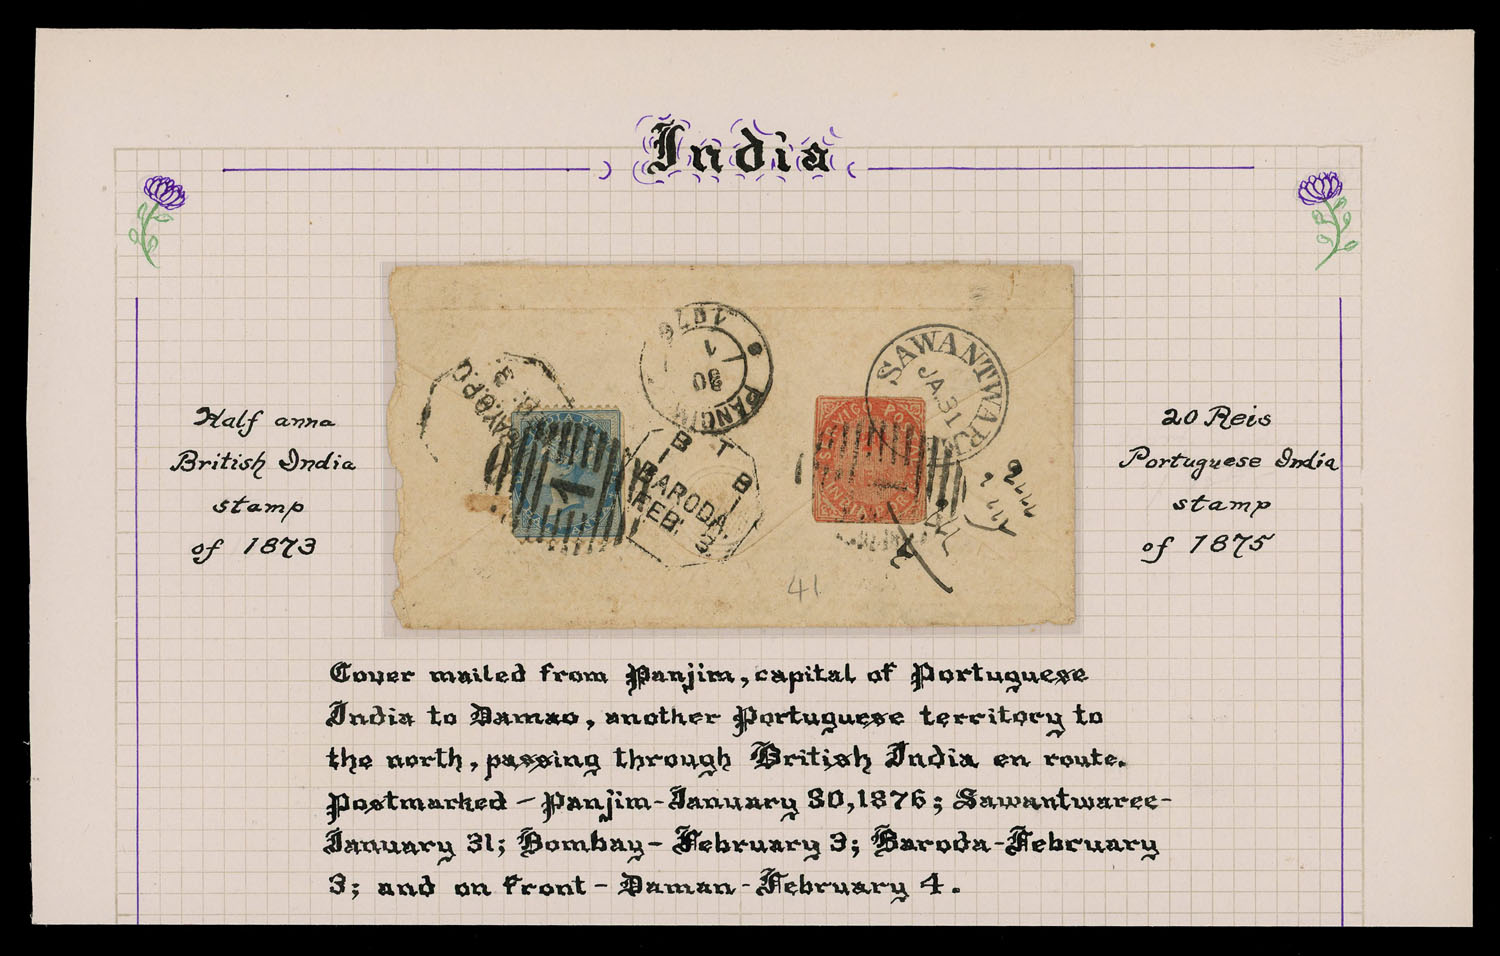 India
Half anna
British India
stamp
of 1873
20 Reis
Portuguese India
stamp
of 1875
PANGIM
30
1
1876
SAWANTWAREE
JA.31
B T
B
BARODA.
FEB. 3
1
41
Cover mailed from Panjim, capital of Portuguese
India to Damao, another Portuguese territory to
the north, passing through British India en route.
Postmarked - Panjim - January 30, 1876; Sawantwaree -
January 31; Bombay - February 3; Baroda - February
3; and on front - Daman - February 4.